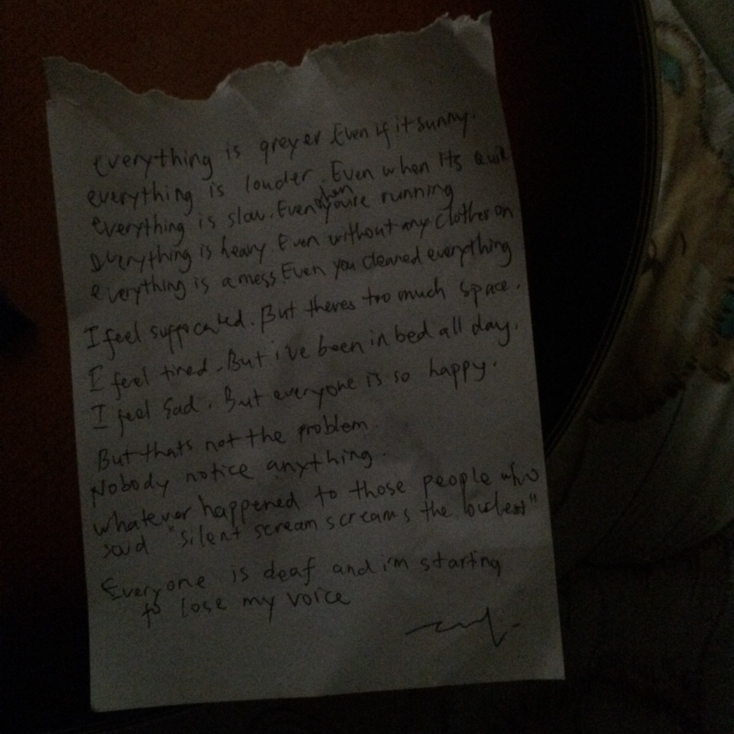 everything is greyer Even if it sunny.
everything is louder. Even when its quit
everything is slow. Even when you're running
everything is heavy. Even without any clothes on
everything is a mess. Even you cleaned everything
I feel suffocated. But theres too much space.
I feel tired. But i've been in bed all day.
I feel sad. But everyone is so happy.
But thats not the problem.
Nobody notice anything.
whatever happened to those people who
said "silent scream screams the loudest"
Everyone is deaf and i'm starting
to lose my voice